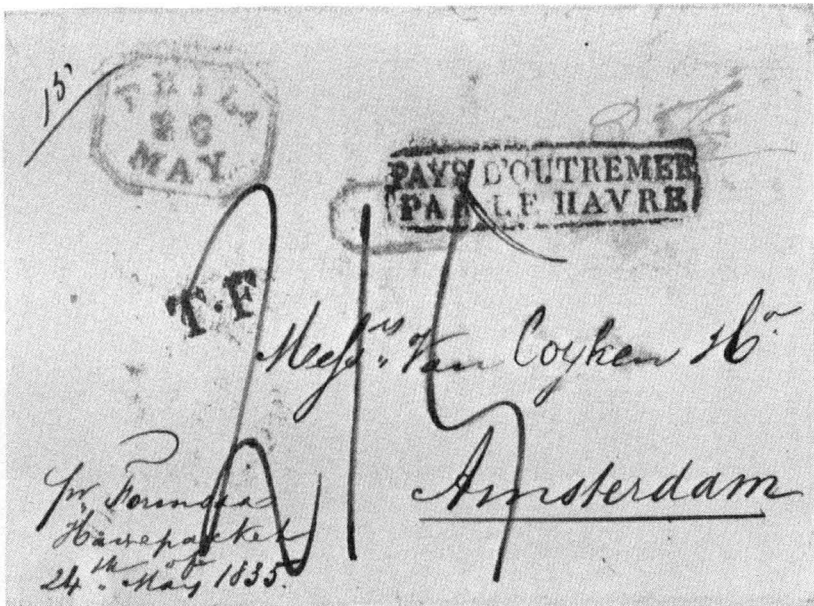 PHILA
MAY
PAYS D'OUTREMER
PAR LE HAVRE
T.F
Messrs. Van Coyken
Amsterdam
pr. Formosa
Havrepacket
of
24th. May 1835.